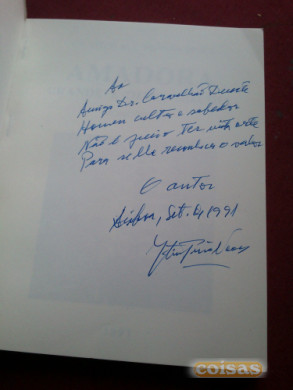 Ao
Amigo Dr. Carvalhão Duarte
Homem culto e sabedor
Não é preciso ter muita arte
Para se lhe reconhecer o valor
O autor
Lisboa, Set. 4, 1991
coisas